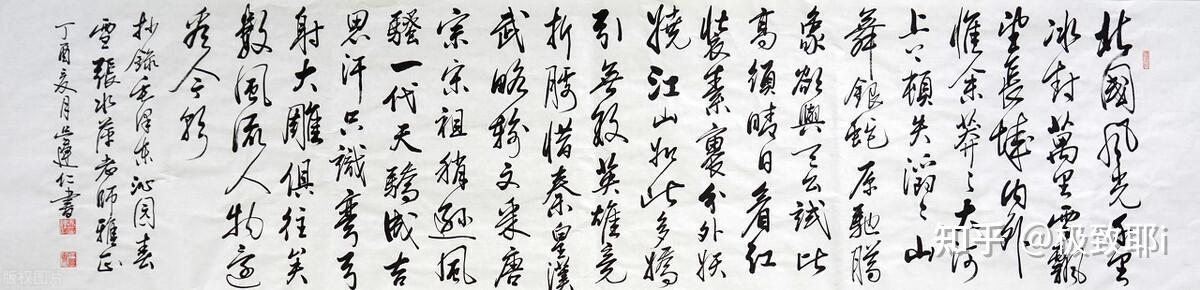 北國風光千里
冰封萬里雪飄
望長城内外
惟余莽々大河
上下頓失滔々山
舞銀蛇原馳臘
象欲與天公試比
高須晴日看紅
裝素裹分外妖
嬈江山如此多嬌
引無數英雄競
折腰惜秦皇漢
武略輸文采唐
宗宋祖稍遜風
騷一代天驕成吉
思汗只識彎弓
射大雕俱往矣
數風流人物還
看今朝
抄錄毛澤東沁園春
雪張水萍老師雅正
丁酉夏月達仁書
知乎 @极致耶i
版权图片